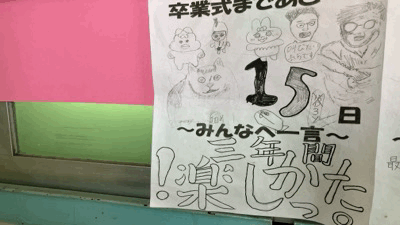 卒業式まであと
15日
～みんなへ一言～
三年間
楽しかった。!